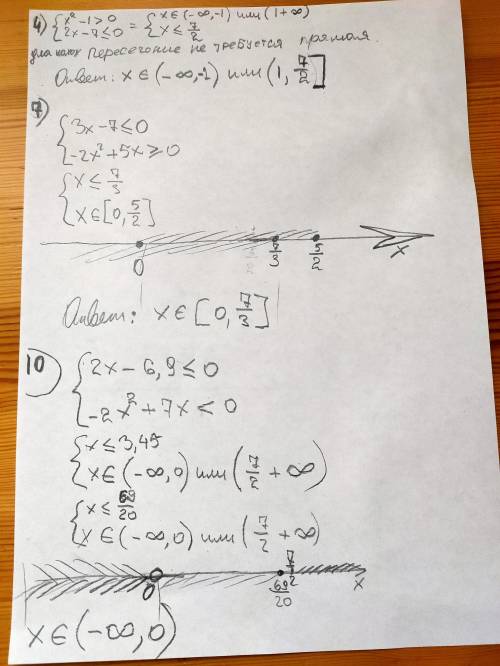 4) { x² - 1 > 0 = { x ∈ (-∞, -1) или (1 + ∞)
{ 2x - 7 ≤ 0 { x ≤ 7/2
пересечение не требуется прямая.
Ответ: x ∈ (-∞, -1) или (1, 7/2]
7)
{ 3x - 7 ≤ 0
{ -2x² + 5x ≥ 0
{ x ≤ 7/3
{ x ∈ [0, 5/2]
0 7/3 5/2 x
Ответ: x ∈ [0, 7/3]
10) { 2x - 6,9 ≤ 0
{ -2x² + 7x < 0
{ x ≤ 3,45
{ x ∈ (-∞, 0) или (7/2 + ∞)
{ x ≤ 69/20
{ x ∈ (-∞, 0) или (7/2 + ∞)
0 69/20 7/2 x
x ∈ (-∞, 0)